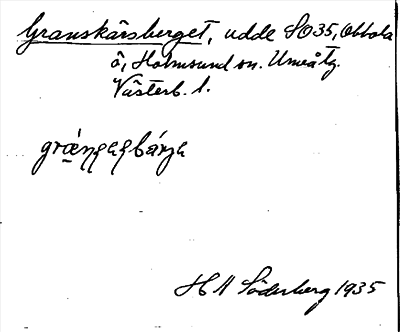 Granskärsberget, udde SO35, Obbola
ö, Holmsund sn. Umeåtg.
Västerb. l.
H N Söderberg 1935